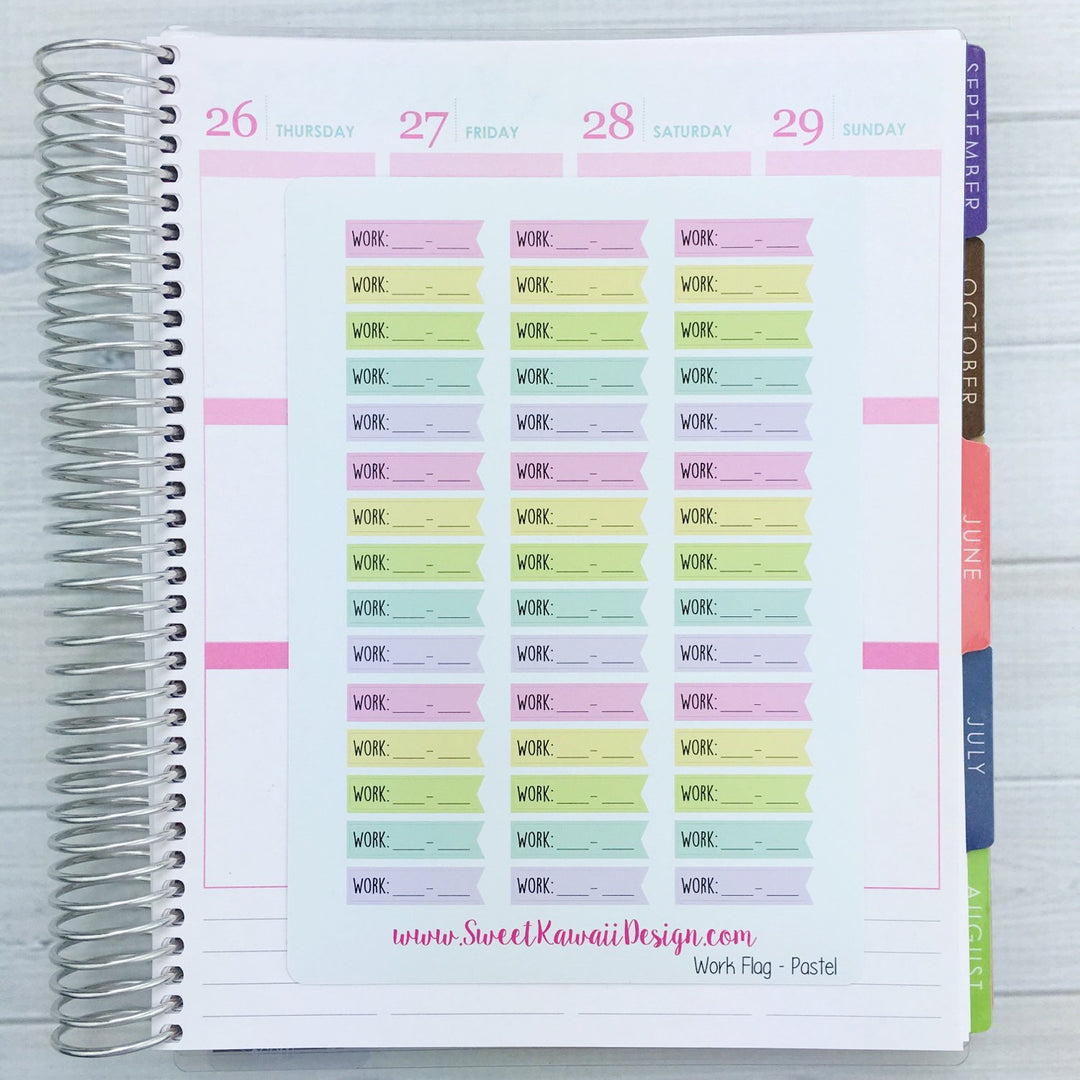 26 THURSDAY 27 FRIDAY 28 SATURDAY 29 SUNDAY
WORK: ___-___ WORK: ___-___ WORK: ___-___
WORK: ___-___ WORK: ___-___ WORK: ___-___
WORK: ___-___ WORK: ___-___ WORK: ___-___
WORK: ___-___ WORK: ___-___ WORK: ___-___
WORK: ___-___ WORK: ___-___ WORK: ___-___
WORK: ___-___ WORK: ___-___ WORK: ___-___
WORK: ___-___ WORK: ___-___ WORK: ___-___
WORK: ___-___ WORK: ___-___ WORK: ___-___
WORK: ___-___ WORK: ___-___ WORK: ___-___
WORK: ___-___ WORK: ___-___ WORK: ___-___
WORK: ___-___ WORK: ___-___ WORK: ___-___
WORK: ___-___ WORK: ___-___ WORK: ___-___
WORK: ___-___ WORK: ___-___ WORK: ___-___
WORK: ___-___ WORK: ___-___ WORK: ___-___
WORK: ___-___ WORK: ___-___ WORK: ___-___
www.SweetKawaiiDesign.com
Work Flag - Pastel
SEPTEMBER
OCTOBER
JUNE
JULY
AUGUST